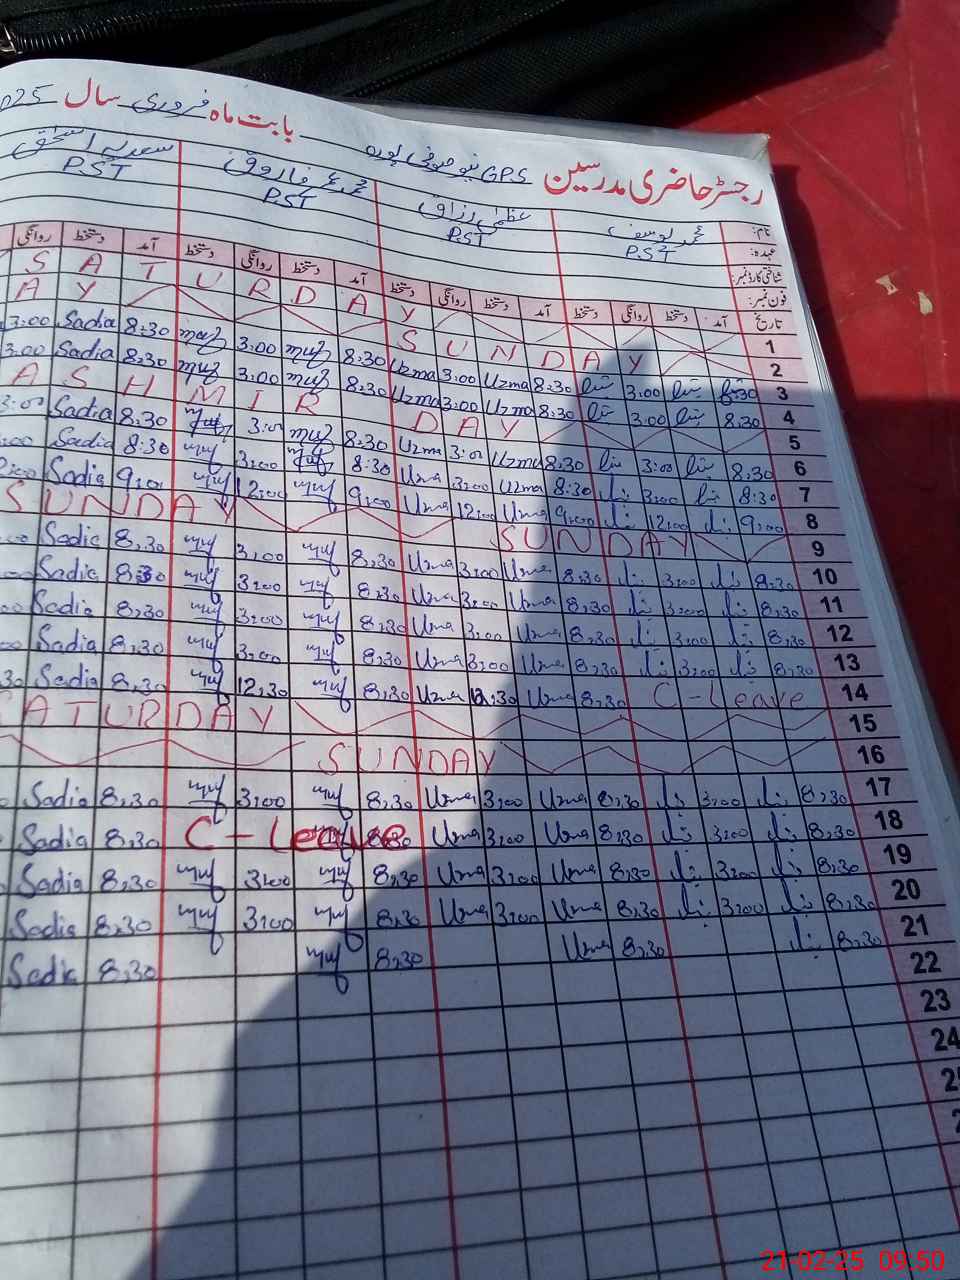 رجسٹر حاضری مدرسین GPS نیو صوفی پورہ بابت ماہ فروری سال 025
نام: محمد یوسف عظمٰی رزاق محمد عمر فاروق سعدیہ اسحٰق
عہدہ: PST PST PST PST
شناختی کارڈ نمبر:
فون نمبر:
تاریخ آمد دستخط روانگی دستخط آمد دستخط روانگی دستخط آمد دستخط روانگی دستخط آمد دستخط روانگی
1 SATURDAY
2 SUNDAY AY
3 8:30 3:00 8:30 Uzma 3:00 Uzma 8:30 3:00 8:30 Sadia 3:00
4 8:30 3:00 8:30 Uzma 3:00 Uzma 8:30 3:00 8:30 Sadia 3:00
5 ASHMIR DAY
6 8:30 3:00 8:30 Uzma 3:00 Uzma 8:30 3:00 8:30 Sadia 3:00
7 8:30 3:00 8:30 Uzma 3:00 Uzma 8:30 3:00 8:30 Sadia :00
8 9:00 12:00 9:00 Uzma 12:00 Uzma 9:00 12:00 9:00 Sadia
9 SUNDAY SUNDAY
10 8:30 3:00 8:30 Uzma 3:00 Uzma 8:30 3:00 8:30 Sadia
11 8:30 3:00 8:30 Uzma 3:00 Uzma 8:30 3:00 8:30 Sadia
12 8:30 3:00 8:30 Uzma 3:00 Uzma 8:30 3:00 8:30 Sadia
13 8:30 3:00 8:30 Uzma 3:00 Uzma 8:30 3:00 8:30 Sadia
14 C-Leave 8:30 Uzma 12:30 Uzma 8:30 12:30 8:30 Sadia 30
15 ATURDAY
16 SUNDAY
17 8:30 3:00 8:30 Uzma 3:00 Uzma 8:30 3:00 8:30 Sadia
18 8:30 3:00 8:30 Uzma 3:00 Uzma 8:30 C-Leave 8:30 Sadia
19 8:30 3:00 8:30 Uzma 3:00 Uzma 8:30 3:00 8:30 Sadia
20 8:30 3:00 8:30 Uzma 3:00 Uzma 8:30 3:00 8:30 Sadia
21 8:30 8:30 Uzma 8:30 8:30 Sadia
22
23
24
21-02-25 09:50